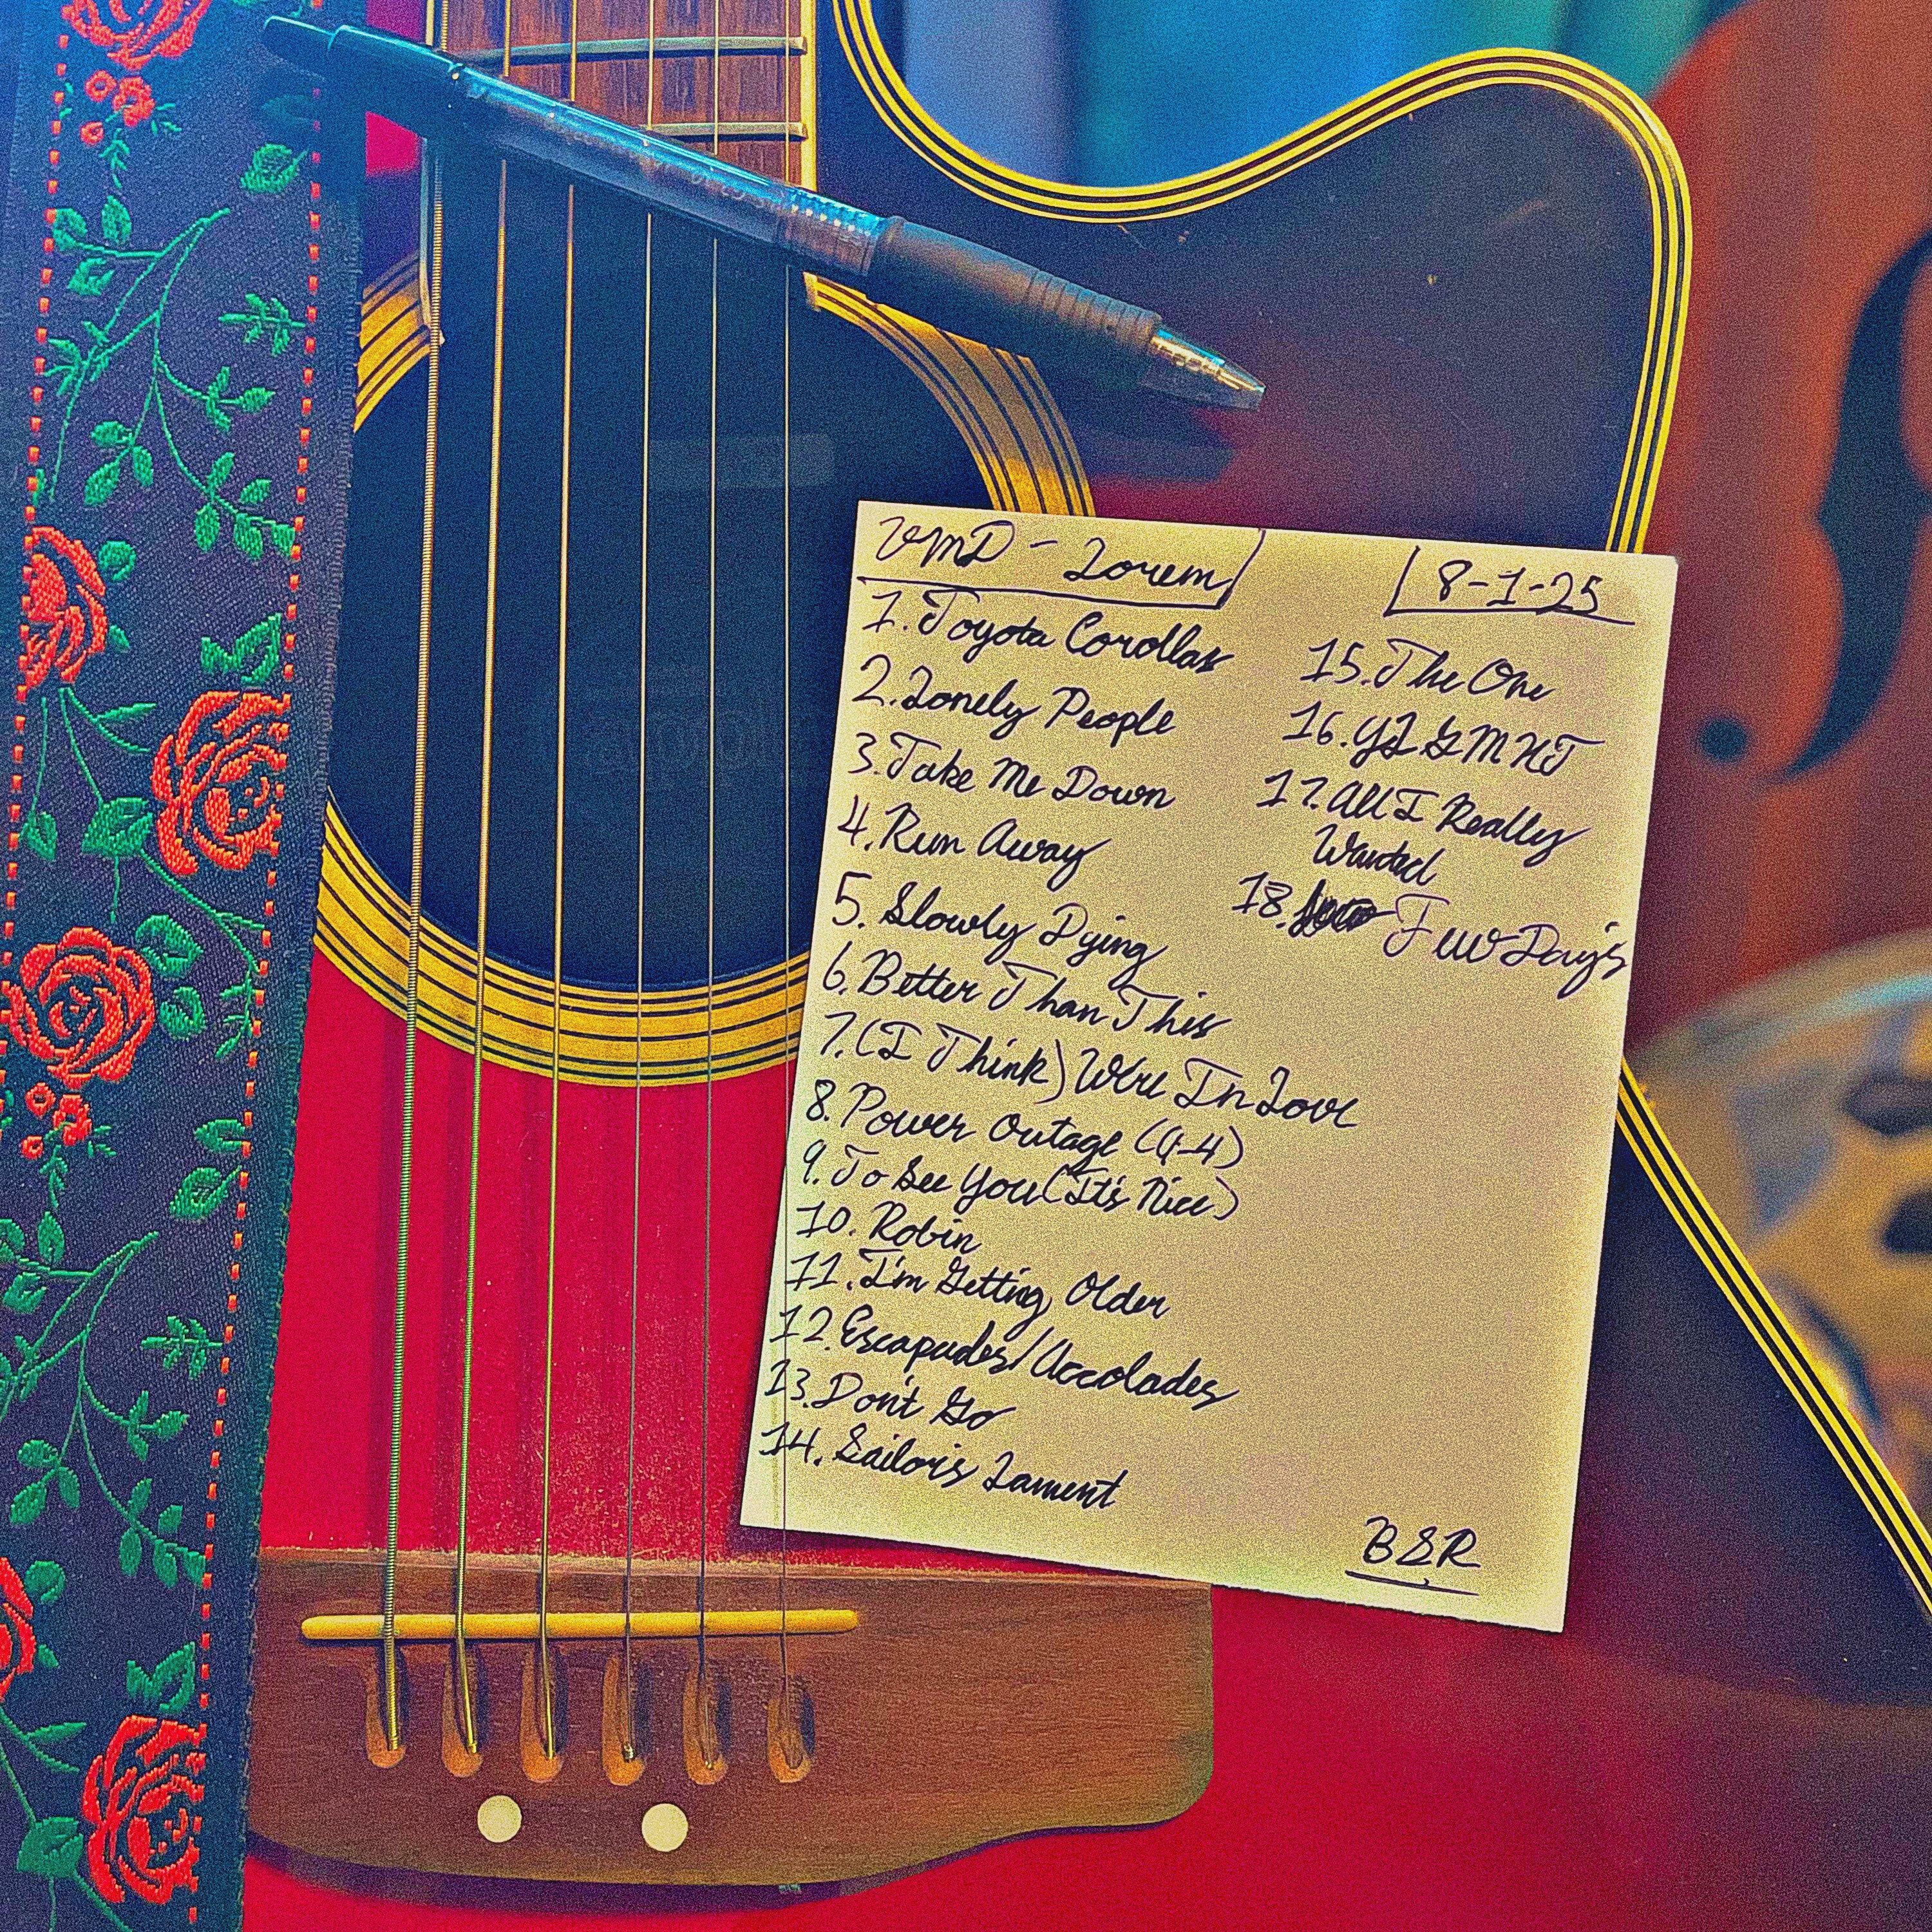 VMD - Lorem
8-1-25
1. Toyota Corollas
2. Lonely People
3. Take Me Down
4. Run Away
5. Slowly Dying
6. Better Than This
7. (I Think) We're In Love
8. Power Outage (Q4)
9. To See You (It's Nice)
10. Robin
11. I'm Getting Older
12. Escapades/Accolades
13. Don't Go
14. Sailor's Lament
15. The One
16. YLGMHT
17. All I Really
Wanted
18. Few Day's
BSR